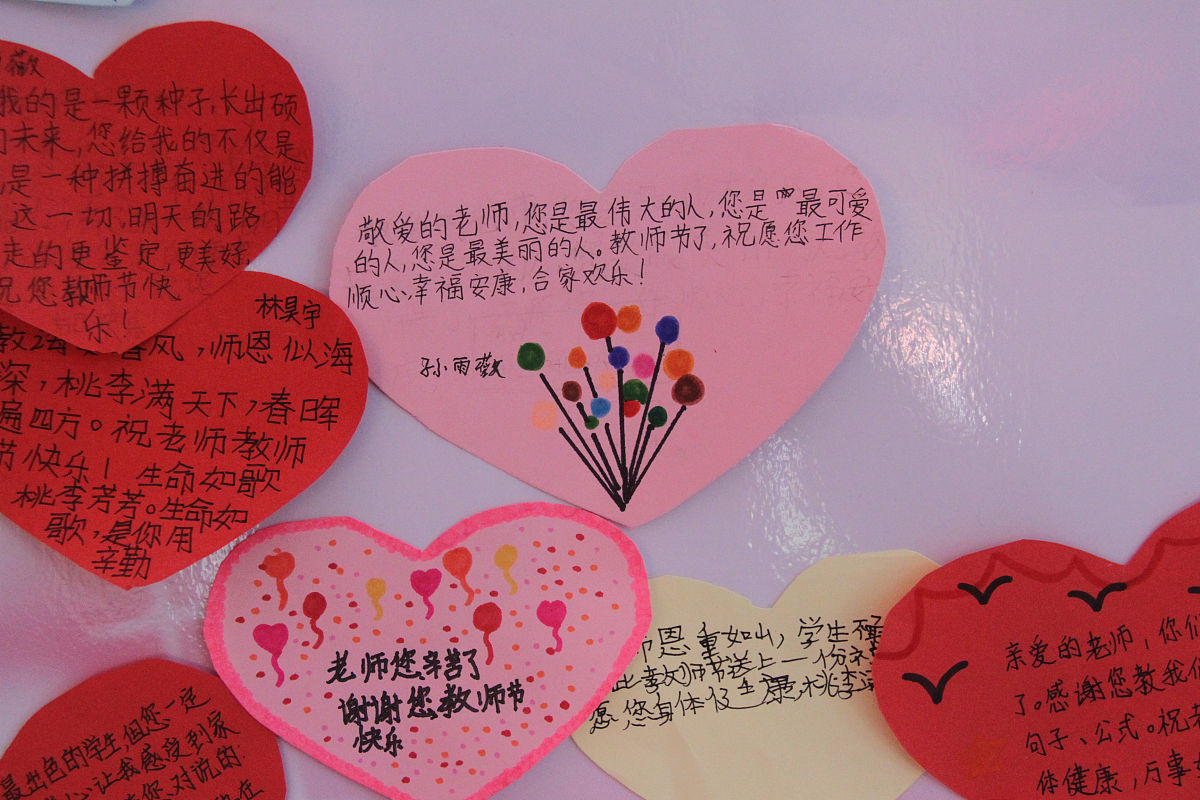 薇
我的是一颗种子,长出硕
未来,您给我的不仅是
,是一种拼搏奋进的能
这一切,明天的路
走的更鉴定,更美好,
祝您教师节快
乐!
林昊宇
春风,师恩似海
深,桃李满天下,春晖
遍四方。祝老师教师
节快乐!生命如歌
桃李芳芳。生命如
歌,是你用
辛勤
敬爱的老师,您是最伟大的人,您是最可爱
的人,您是最美丽的人。教师节了,祝愿您工作
顺心,幸福安康,合家欢乐!
孙雨薇
老师您辛苦了
谢谢您教师节
快乐
师恩重如山,学生不
此教师节送上一份
愿,您身体健康,桃李满
亲爱的老师,你们
了。感谢您教我们
句子、公式。祝
体健康,万事
最出色的学生,但您一定
心让我感受到家
您,对说的
在